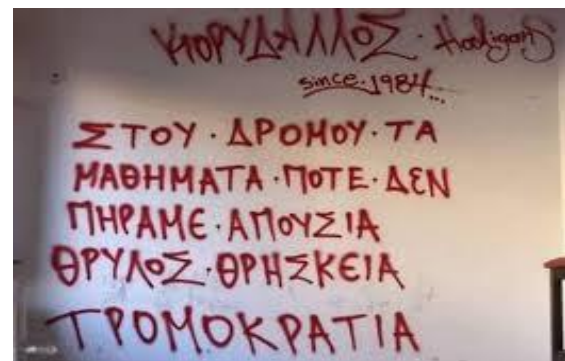 ΚΟΡΥΔΑΛΛΟΣ · Hooligans
since 1984...
ΣΤΟΥ · ΔΡΟΜΟΥ · ΤΑ
ΜΑΘΗΜΑΤΑ · ΠΟΤΕ · ΔΕΝ
ΠΗΡΑΜΕ · ΑΠΟΥΣΙΑ
ΘΡΥΛΟΣ · ΘΡΗΣΚΕΙΑ
ΤΡΟΜΟΚΡΑΤΙΑ